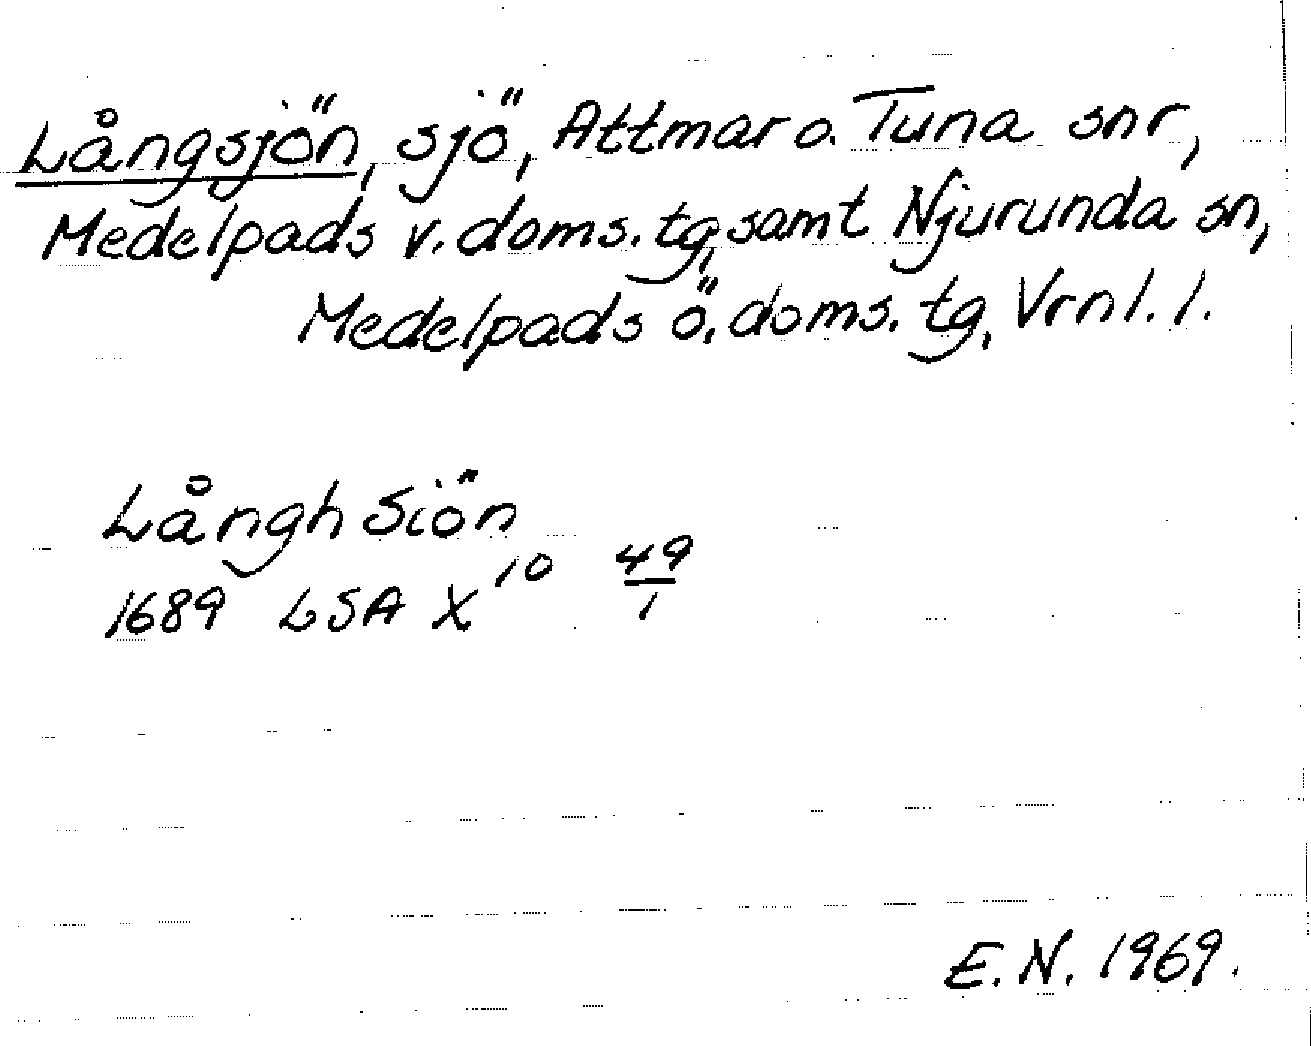 Långsjön, sjö, Attmar o. Tuna snr,
Medelpads v. doms. tg, samt Njurunda sn,
Medelpads ö. doms. tg, Vrnl. l.
Långh Siön
1689 LSA X¹⁰ 49/1
E. N. 1969.